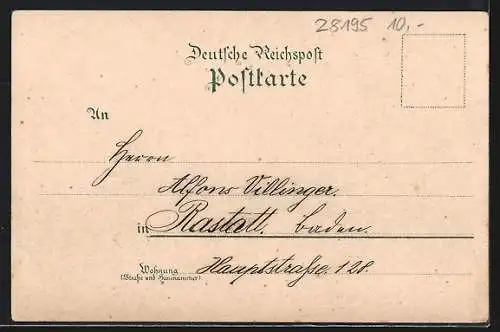 28195 10,-
Deutsche Reichspost
Postkarte
An
Herrn
Alfons Villinger.
in Rastatt. Baden.
Wohnung Hauptstraße 128.
(Straße und Hausnummer)